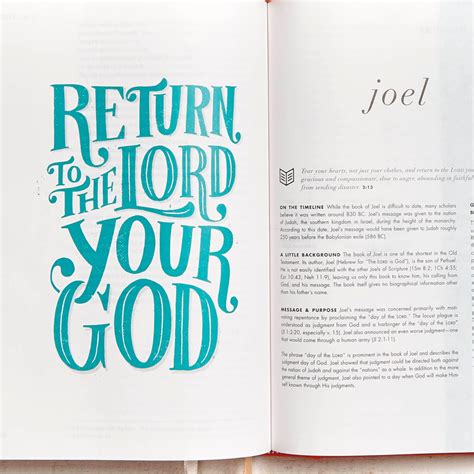 RETURN
TO THE LORD
YOUR
GOD
joel
Tear your hearts, not just your clothes, and return to the LORD
gracious and compassionate, slow to anger, abounding in faithful
from sending disaster. 2:13
ON THE TIMELINE While the book of Joel is difficult to date, many scholars
believe it was written around 830 BC. Joel's message was given to the nation
of Judah, the southern kingdom in Israel, during the height of the monarchy.
According to this view, Joel's message was given to Judah roughly
250 years before the Babylonian exile (586 BC).
A LITTLE BACKGROUND The book of Joel is one of the shortest in the Old
Testament. Its author, Joel (Hebrew for "The LORD is God"), is the son of Pethuel.
He is not easily identified with the other Joels of Scripture (1Sm 8:2; 1Ch 4:35;
Ezr 10:43; Neh 11:9), leaving us only this book to know him, his calling from
God, and his message. The book itself gives no biographical information other
than his father's name.
MESSAGE & PURPOSE Joel's message was concerned primarily with
motivating repentance by proclaiming the "day of the LORD." The locust plague is
understood as judgment from God and a harbinger of the "day of the LORD"
(Jl 2:1-2). Joel also announced an even worse judgment
come through a human army (Jl 2:1-11).
The phrase "day of the LORD" is prominent in the book of Joel and describes the
judgment day of God. Joel pointed to this day when God would judge both the
nation of Judah and against the "nations" as a whole. In addition to the more
general theme of judgment, Joel also pointed to a day when God will make Him-
self known through His judgment.